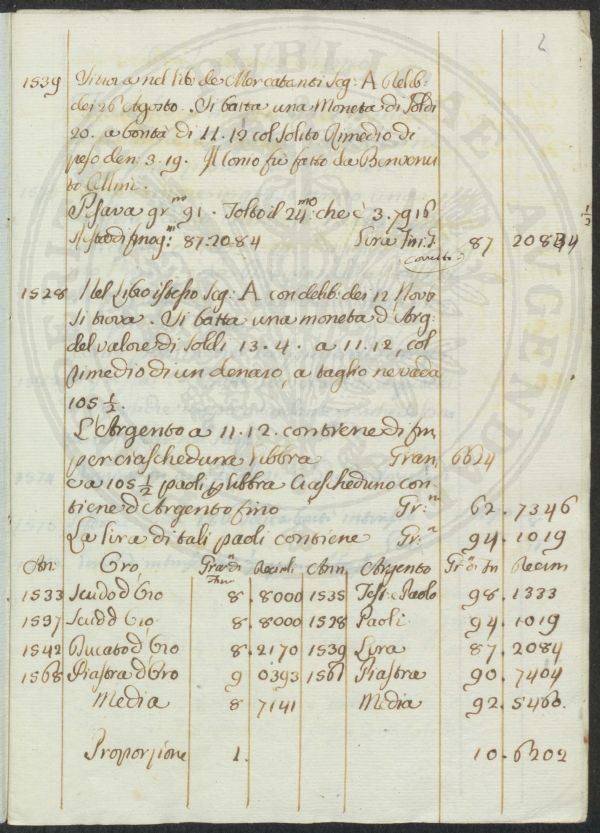 2
1539 Si trova nel lib: de Mercatanti Seg: A Delib:
dei 26 Agosto. Si batta una Moneta di Soldi
20. a bontà di 11.12 col Solito Rimedio di
peso den: 3.19. Il Conio fù fatto da Benvenu
to Cellini.
Pesava gr.ni 91. Tolto il 24mo che è 3.7916
Resta di fino gr.ni 87.2084 Lira 87 2084 1/2
1528 Nel Libro istesso Seg: A con delib: dei 12 Nove
Si trova. Si batta una moneta d'Arg:
del valore di Soldi 13.4. a 11.12, col
rimedio di un denaro, a taglio ne vada
105 1/2.
L'Argento a 11.12. contiene di fin,
per ciascheduna libbra Gran, 6624
e a 105 1/2 paoli p libbra Ciascheduno con-
tiene d'Argento fino Gr:n 62.7346
La lira di tali paoli contiene Gr:n 94.1019
An: Oro Gra.ni di Fino Decimli Ann, Argento Gr.ni di fn Decim
1533 Scudo d'Oro 8.8000 1535 Test: Paolo 98.1333
1537 Scud d'Oro 8.8000 1528 Paoli 94.1019
1542 Ducato d'Oro 8.2170 1539 Lira 87.2084
1568 Piastra d'Oro 9 0393 1567 Piastra 90.7404
Media 8 7141 Media 92.5460.
Proporzione 1. 10.6202